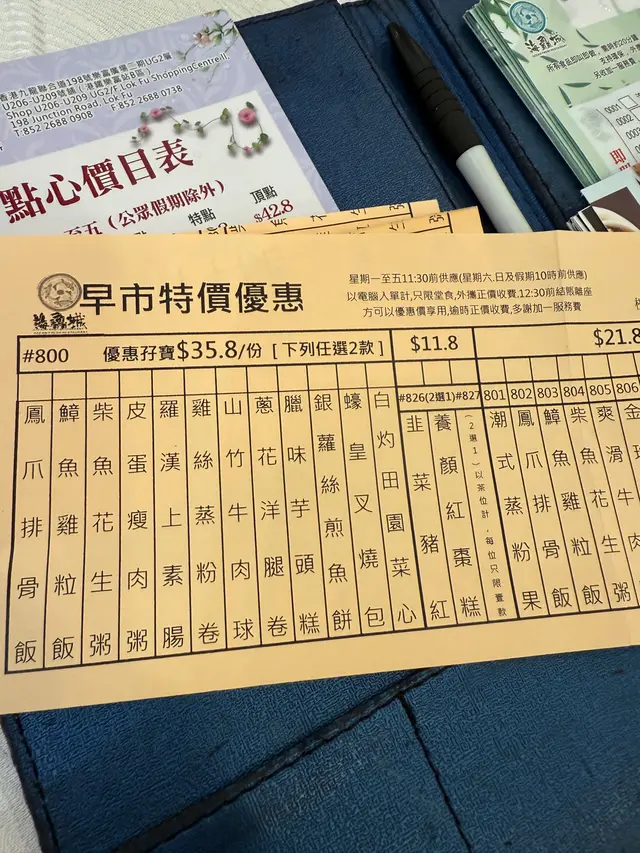 香港九龍聯合道198號樂富廣場二期UG2層
U206-U209號舖（港鐵樂富站B區）
Shop U206-U209 UG2/F Lok Fu Shopping Centre II,
198 Junction Road, Lok Fu
T:852 2688 0908 F 852 2688 0738
點心價目表
至五（公眾假期除外）
特點
頂點
$42.8
所有食品即叫即蒸
0001
0002
早市特價優惠
星期一至五11:30前供應(星期六,日及假期10時前供應)
以電腦入單計,只限堂食,外攜正價收費,12:30前結賬離座
方可以優惠價享用,逾時正價收費,多謝加一服務費
#800 優惠孖寶$35.8/份 [ 下列任選2款 ]
$11.8
$21.8
#826(2選1)#827
801 802 803 804 805 806
鳳爪排骨飯
鱆魚雞粒飯
柴魚花生粥
皮蛋瘦肉粥
羅漢上素腸
雞絲蒸粉卷
山竹牛肉球
蔥花洋腿卷
臘味芋頭糕
銀蘿絲煎魚餅
蠔皇叉燒包
白灼田園菜心
韭菜豬紅
養顏紅棗糕
(2選1)以茶位計，每位只限壹款
潮式蒸粉果
鳳爪排骨飯
鱆魚雞飯
柴魚花生粥